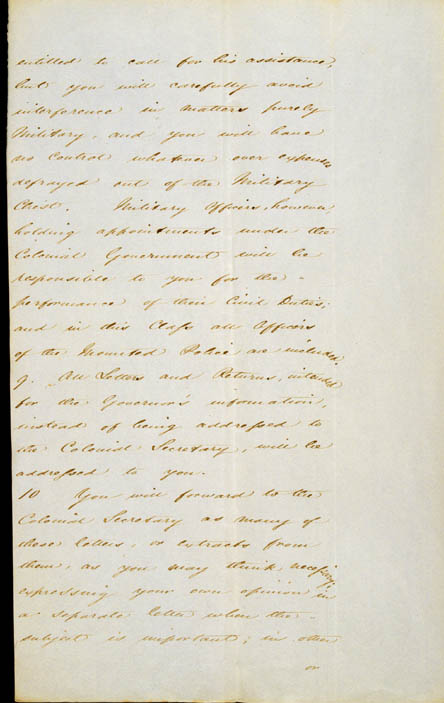 entitled to call for his assistance,
but you will carefully avoid
interference in matters purely
Military, and you will have
no control whatever over expenses
defrayed out of the Military
Chest. Military Officers, however,
holding appointments under the
Colonial Government will be
responsible to you for the -
performance of their Civil Duties;
and in this Class all Officers
of the Mounted Police are included.
9. All Letters and Returns, intended
for the Governor's information,
instead of being addressed to
the Colonial Secretary, will be
addressed to you.
10 You will forward to the
Colonial Secretary as many of
these letters, or extracts from
them, as you may think necessary,
expressing your own opinion in
a separate letter when the -
subject is important; in other
or